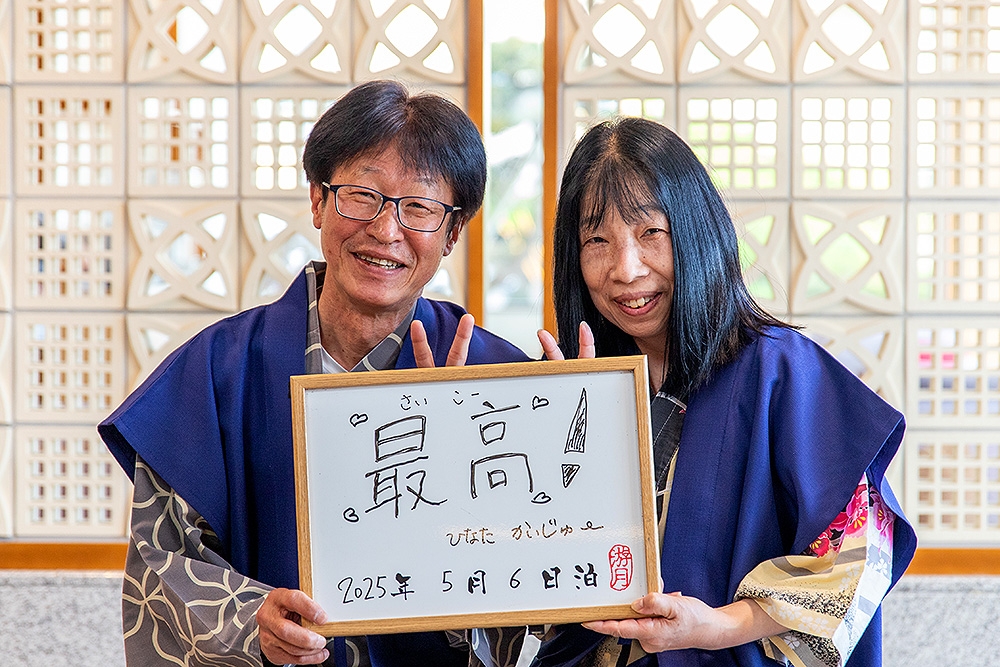 さいこー
最高!
ひなた かいじゅー
2025年 5月 6日泊
游月